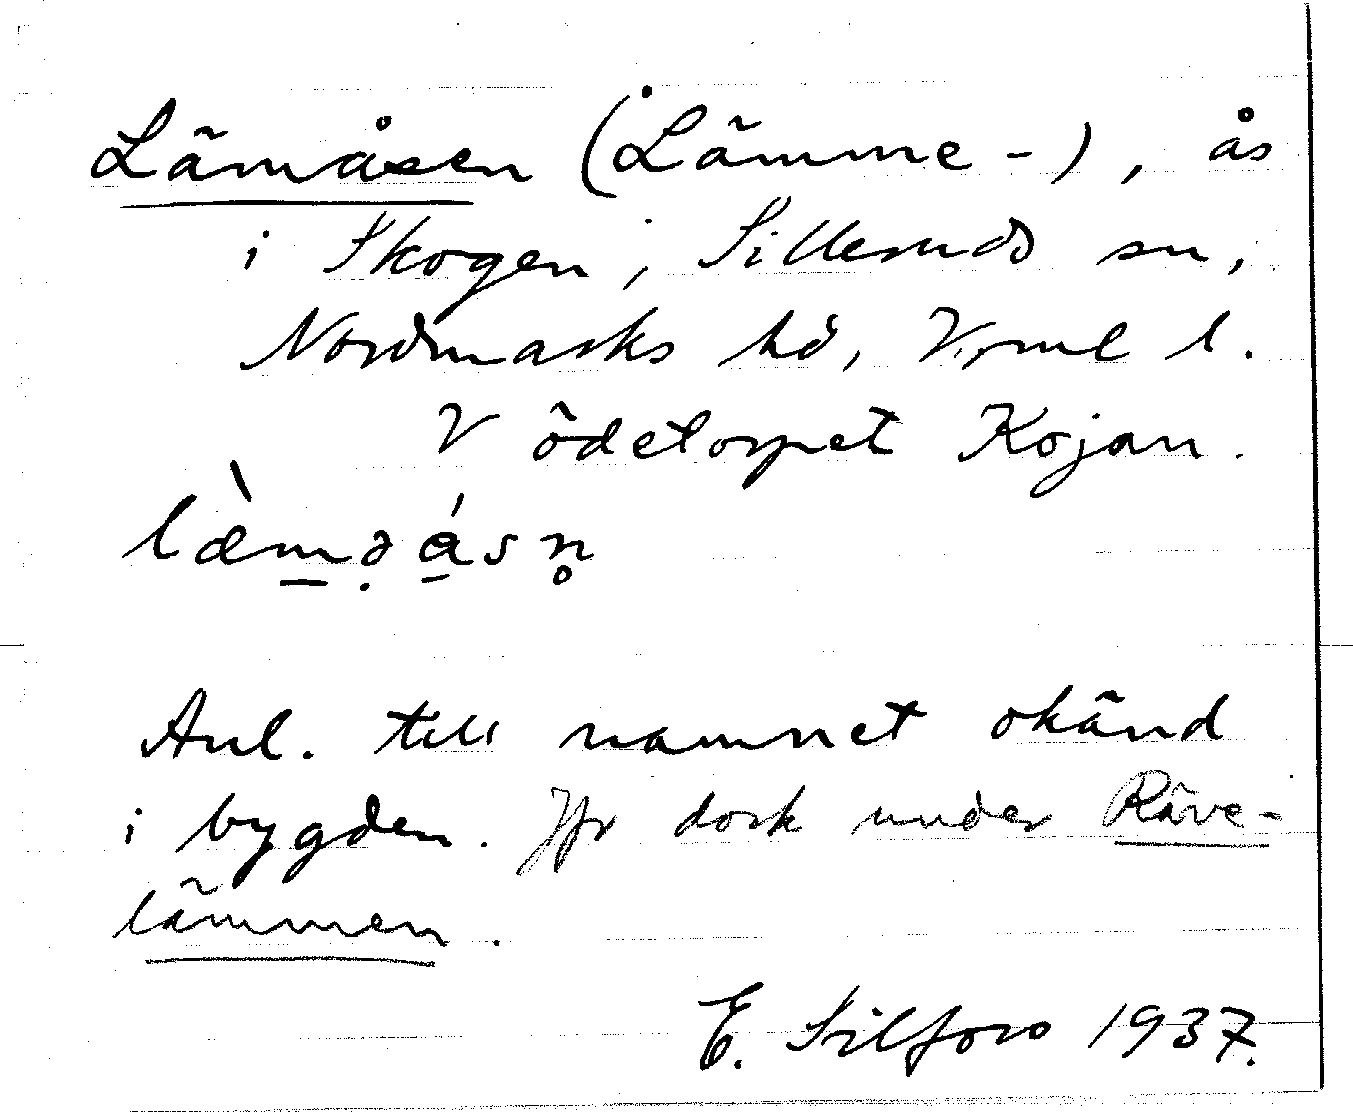 Lämåsen (Lämme-), ås
i Skogen, Silleruds sn,
Nordmarks hd, Vrml l.
V ödetorpet Kojan.
læ̀m̲ə̣á̲sn̥
Anl. till namnet okänd
i bygden. Jfr dock under Räve-
lämmen.
E. Silfors 1937.